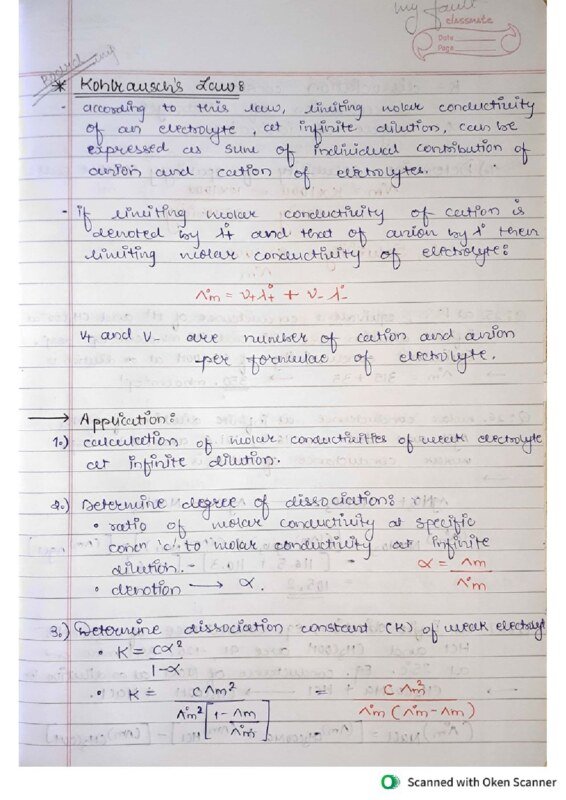 my fault
classmate
Date
Page
* Kohlrausch's Law:
- according to this law, limiting molar conductivity
of an electrolyte, at infinite dilution, can be
expressed as sum of individual contribution of
anion and cation of electrolytes.
- if limiting molar conductivity of cation is
denoted by λ°+ and that of anion by λ°- then
limiting molar conductivity of electrolyte:
Λ°m = ν+ λ°+ + ν- λ°-
ν+ and ν- are number of cation and anion
per formulae of electrolyte.
→ Application:
1.) calculation of molar conductivities of weak electrolyte
at infinite dilution.
2.) Determine degree of dissociation:
• ratio of molar conductivity at specific
concn 'c' to molar conductivity at infinite
dilution. - α = Λm / Λ°m
• denotion → α.
3.) Determine dissociation constant (K) of weak electrolyt
• K = cα² / 1-α
• K = CΛm² / Λ°m² [1 - Λm/Λ°m] = CΛm² / Λ°m (Λ°m - Λm)
Scanned with Oken Scanner